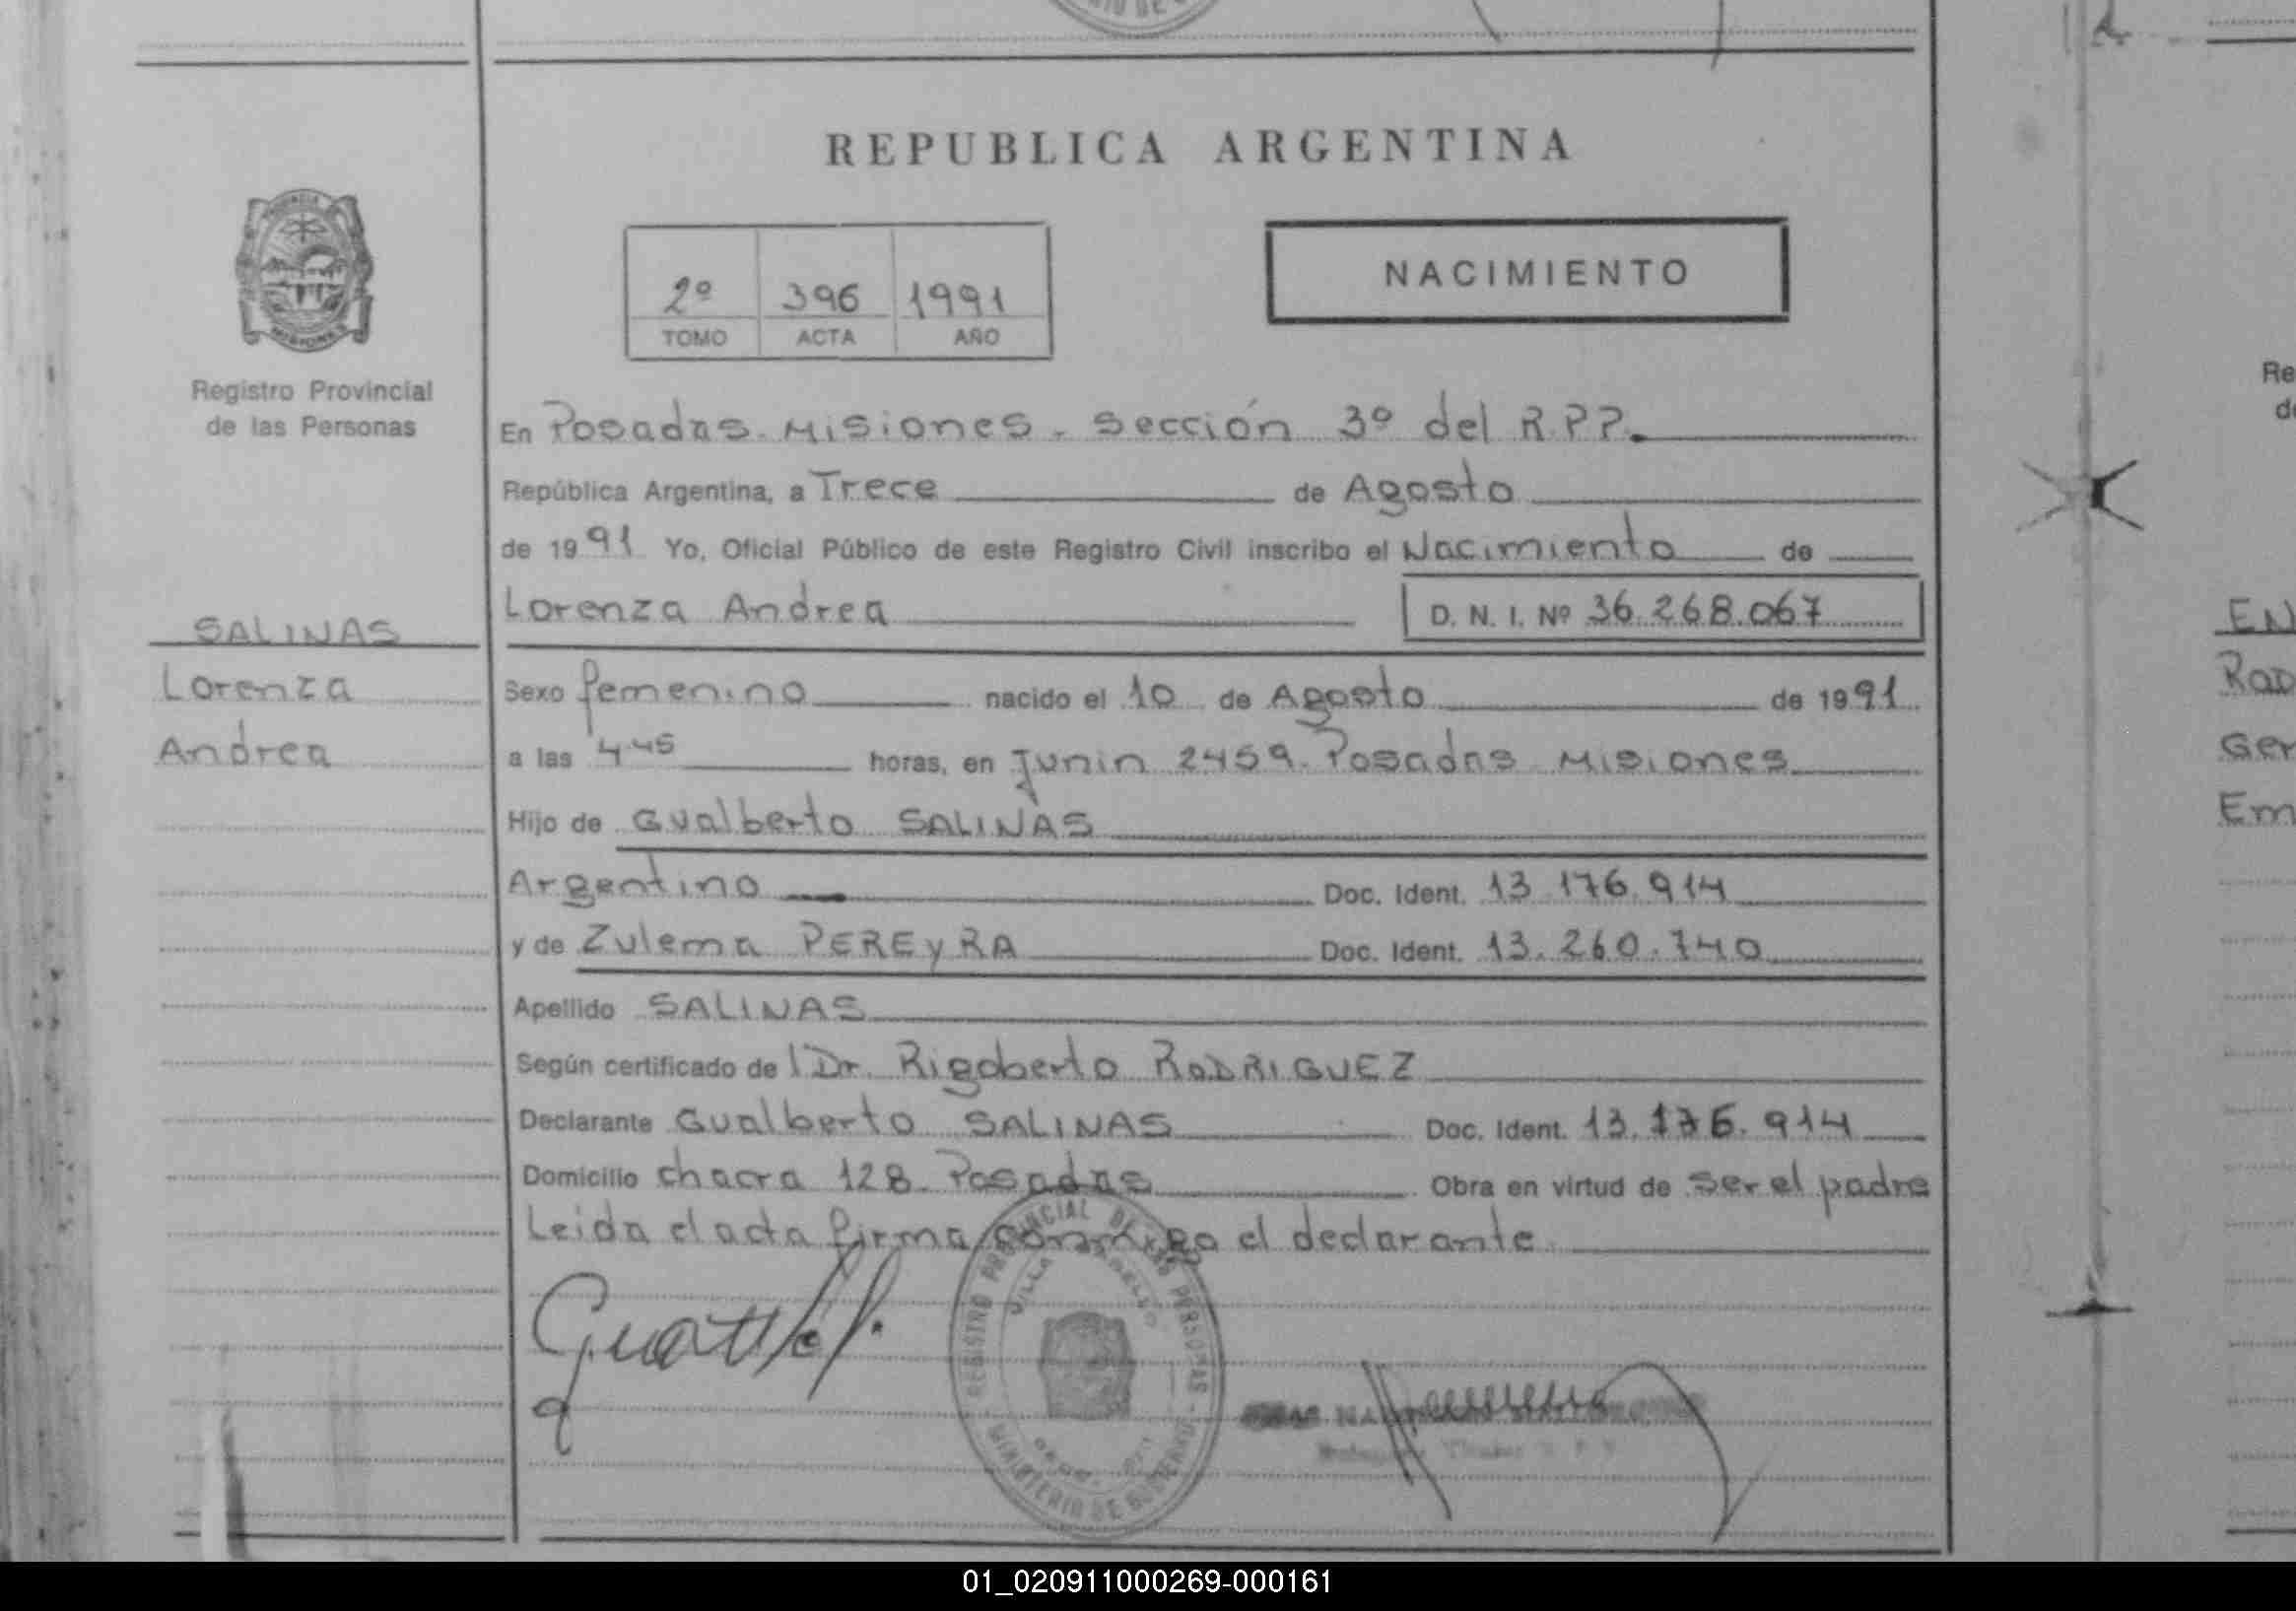 REPUBLICA ARGENTINA
2º 396 1991
TOMO ACTA AÑO
NACIMIENTO
Registro Provincial
de las Personas
En Posadas Misiones. Sección 3º del R.P.P.
República Argentina, a Trece de Agosto
de 1991 Yo, Oficial Público de este Registro Civil inscribo el Nacimiento de
Lorenza Andrea D. N. I. Nº 36.268.067
SALINAS
Lorenza
Andrea
Sexo femenino nacido el 10 de Agosto de 1991
a las 4.45 horas, en Junin 2459. Posadas Misiones
Hijo de Gualberto SALINAS
Argentino Doc. Ident. 13.176.914
y de Zulema PEREyRA Doc. Ident. 13.260.740
Apellido SALINAS
Según certificado de l Dr. Rigoberto RODRIGUEZ
Declarante Gualberto SALINAS Doc. Ident. 13.176.914
Domicilio chacra 128. Posadas Obra en virtud de ser el padre
Leida el acta firma conmigo el declarante
REGISTRO PROVINCIAL DE LAS PERSONAS - MINISTERIO DE GOBIERNO
VILLA
Re
EN
ROD
Ger
Em
01_020911000269-000161